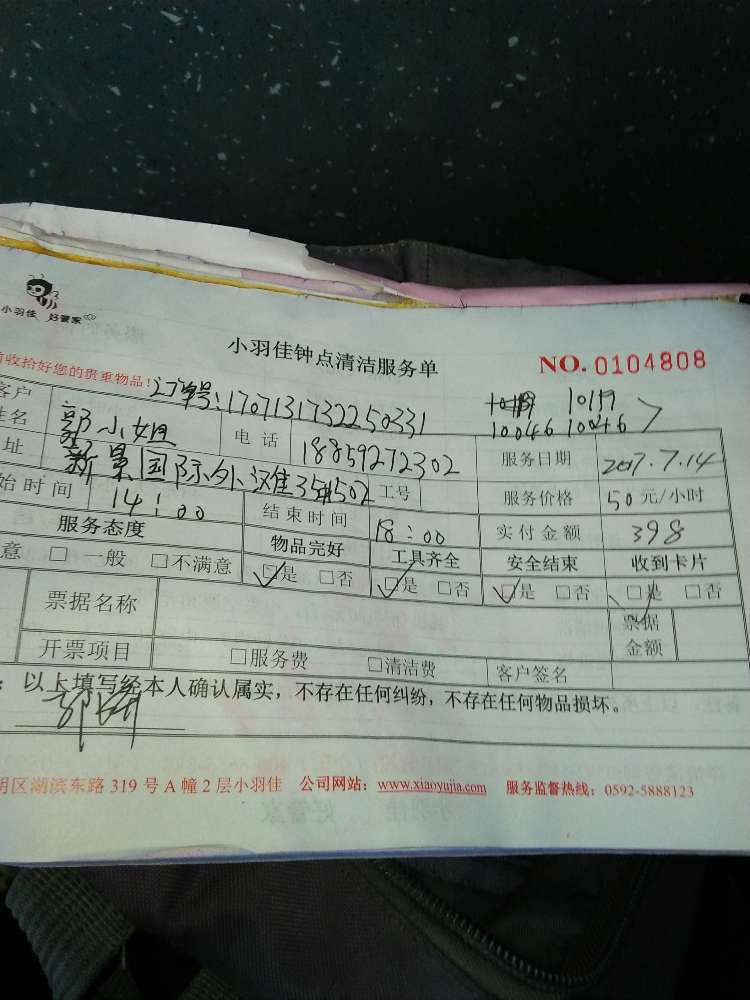 小羽佳 好管家
小羽佳钟点清洁服务单 NO. 0104808
收拾好您的贵重物品! 订单号:1707131732250331
10046 10046
客户姓名 郭小姐 电话 18859272302 服务日期 2017.7.14
址 新景国际外滩 502 工号 服务价格 50元/小时
始时间 14:00 结束时间 18:00 实付金额 398
服务态度 物品完好 工具齐全 安全结束 收到卡片
意 □一般 □不满意 □是 □否 □是 □否 □是 □否 □是 □否
票据名称 票据金额
开票项目 □服务费 □清洁费 客户签名
:以上填写经本人确认属实,不存在任何纠纷,不存在任何物品损坏。
明区湖滨东路 319 号 A 幢 2 层小羽佳 公司网站:www.xiaoyujia.com 服务监督热线:0592-5888123